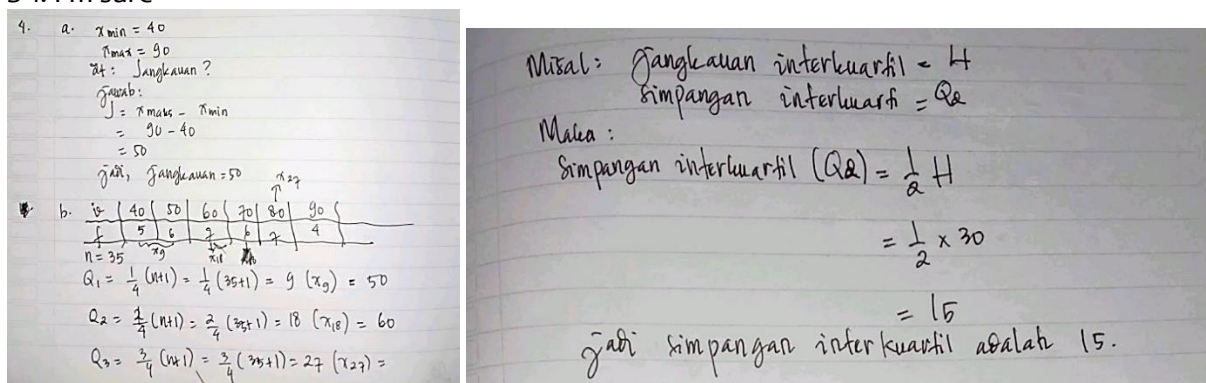 4. a. x min = 40
x max = 90
Dit : Jangkauan ?
Jawab :
J = x maks - x min
= 90 - 40
= 50
jadi, Jangkauan = 50
x27
b. 40 50 60 70 80 90
f 5 6 7 6 7 4
n = 35 x9 x18
Q1 = 1/4 (n+1) = 1/4 (35+1) = 9 (x9) = 50
Q2 = 2/4 (n+1) = 2/4 (35+1) = 18 (x18) = 60
Q3 = 3/4 (n+1) = 3/4 (35+1) = 27 (x27) =
Misal : Jangkauan interkuartil = H
Simpangan interkuarti = Qd
Maka :
Simpangan interkuartil (Qd) = 1/2 H
= 1/2 x 30
= 15
jadi simpangan interkuartil adalah 15.